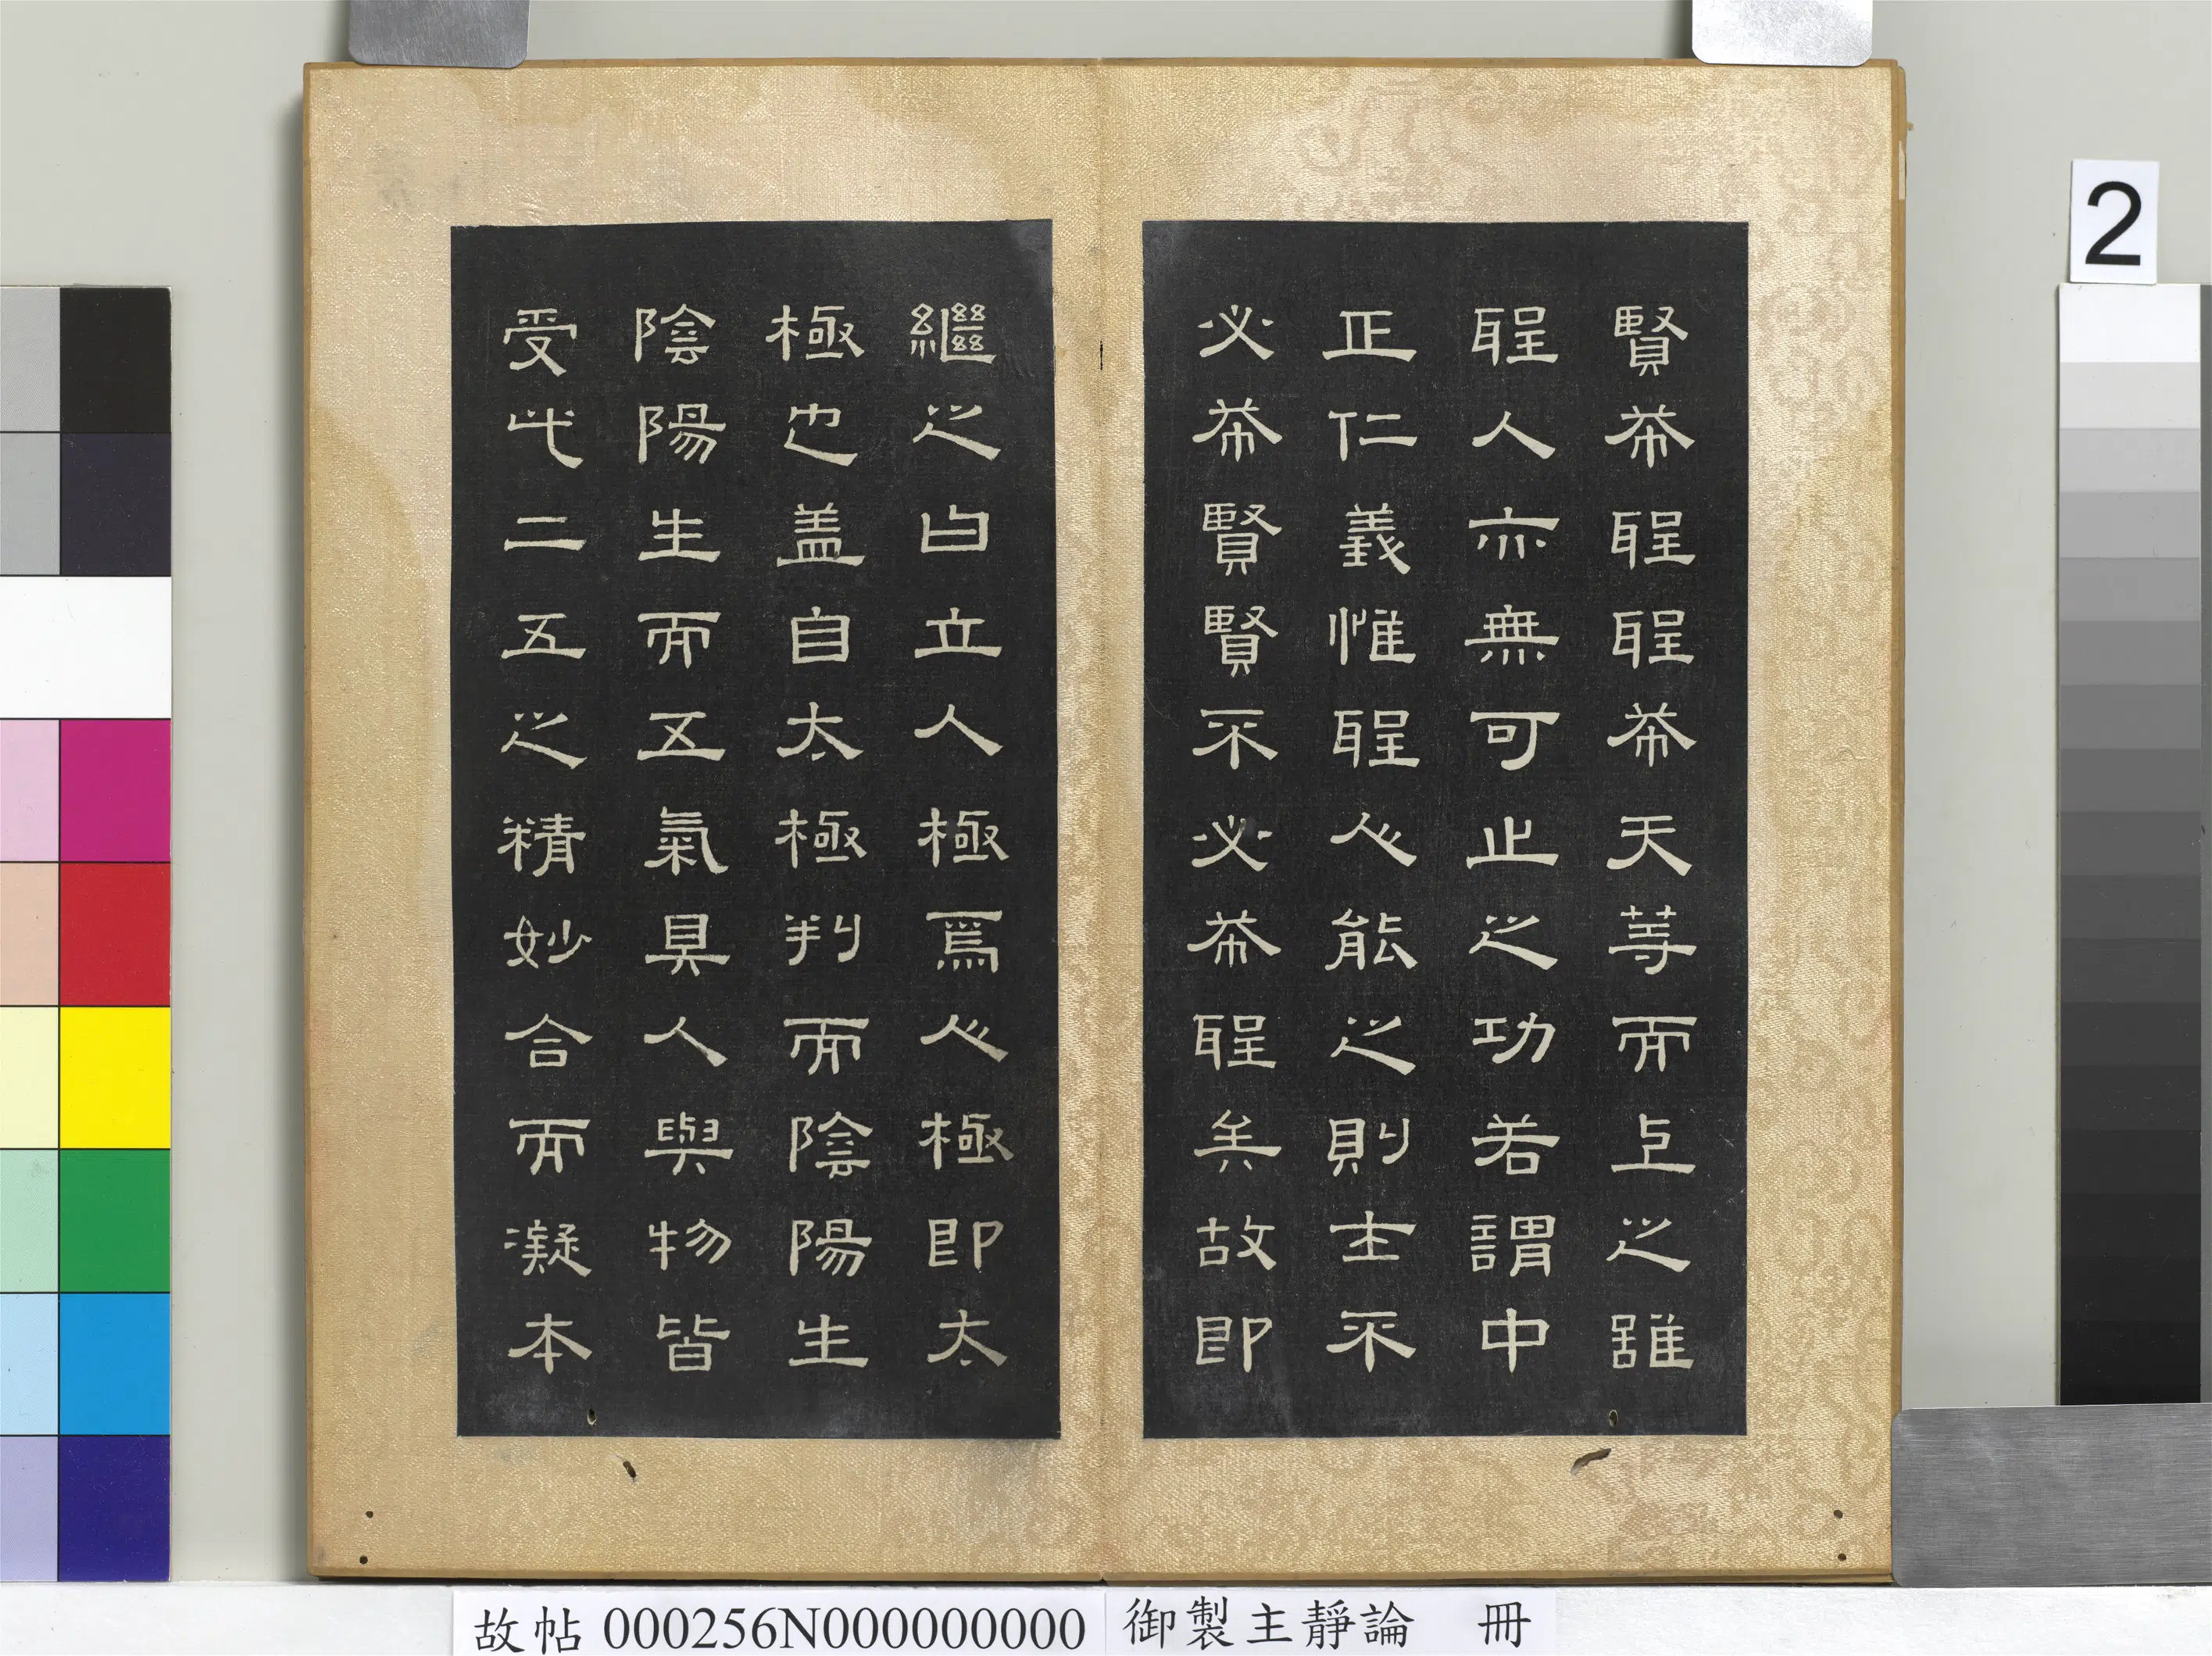 賢希聖聖希天等而上之雖
聖人亦無可止之功若謂中
正仁義惟聖人能之則士不
必希賢賢不必希聖矣故即
繼之曰立人極焉人極即太
極也盖自太極判而陰陽生
陰陽生而五氣具人與物皆
受此二五之精妙合而凝本
2
故帖 000256N000000000 御製主靜論 冊